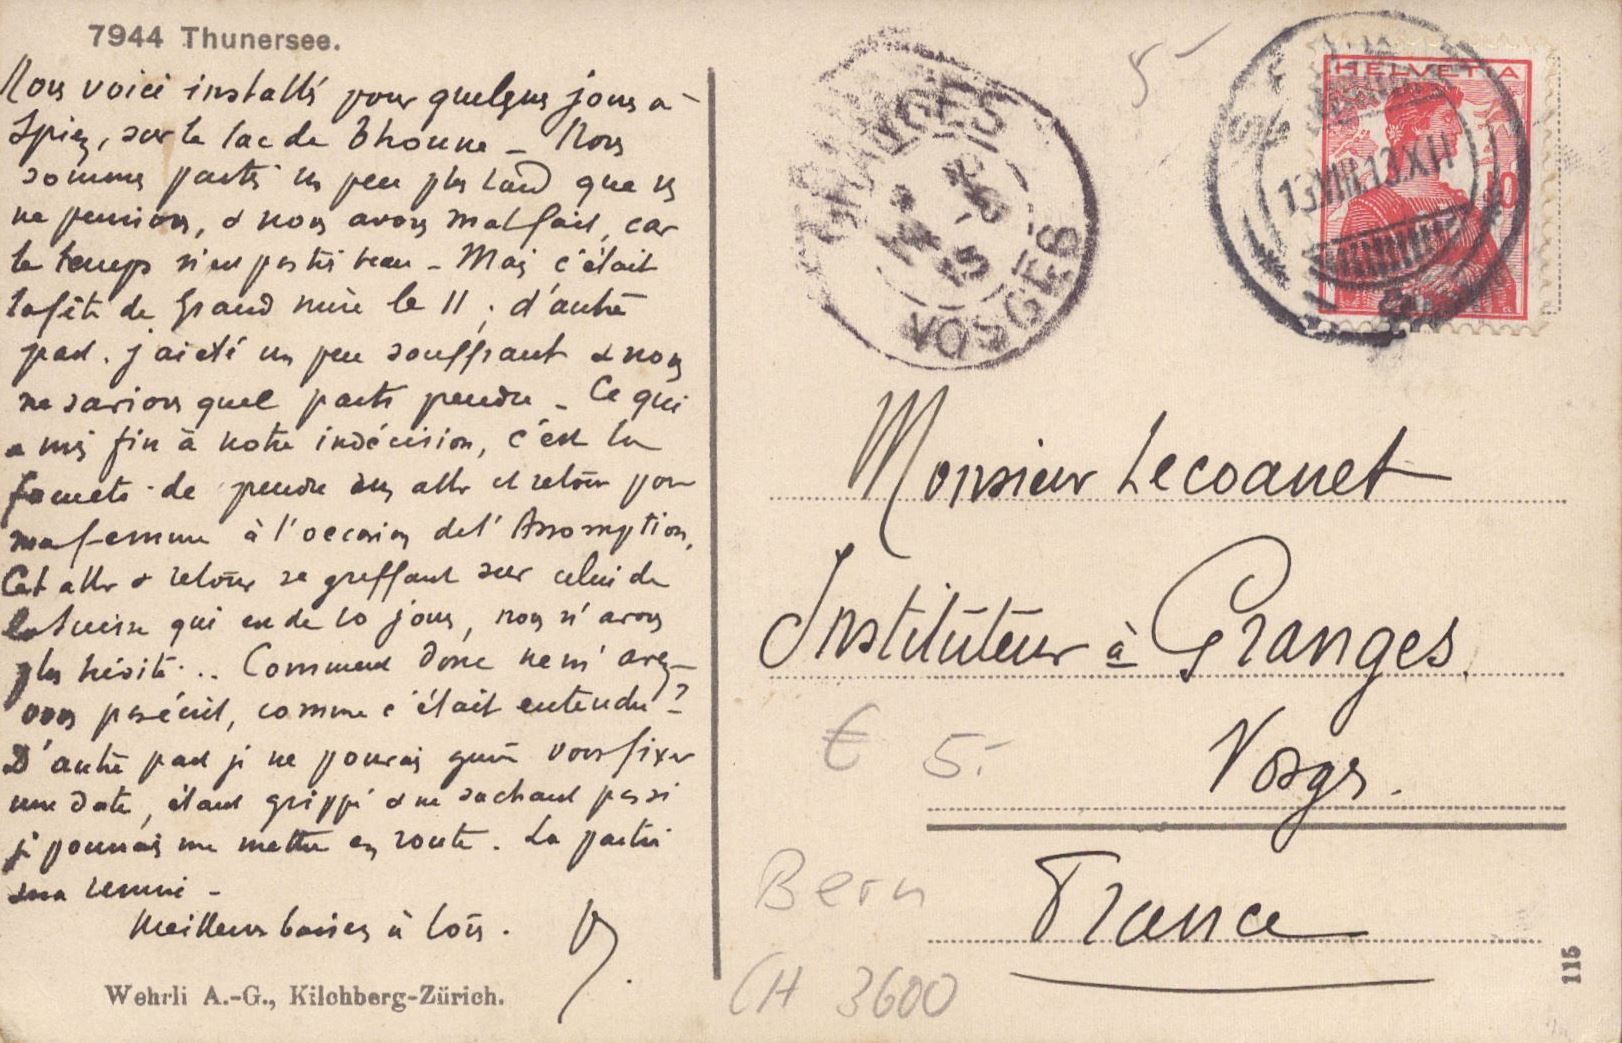 7944 Thunersee.
Nous voici installés pour quelques jours à
Spiez, sur le lac de Thoune - Nous
sommes partis un peu plus tard que ns
ne pensions, & nous avons mal fait, car
le temps n'est pas très beau - Mais c'était
la fête de Grand mère le 11 ; d'autre
part. j'ai été un peu souffrant & nous
ne savions quel parti prendre - Ce qui
a mis fin à notre indécision, c'est la
de prendre un aller et retour pour
ma femme à l'occasion de l'Assomption.
Cet aller & retour se greffant sur celui de
la Suisse qui est de 10 jours, nous n'avons
plus hésité... Comment donc ne m'avez-
vous pas écrit, comme c'était entendu ?
D'autre part je ne pouvais guère vous fixer
une date, étant grippé & ne sachant pas si
je pourrais me mettre en route. La partie
sera remise -
Meilleurs baisers à tous.
Wehrli A.-G., Kilchberg-Zürich.
GRANGES
VOSGES
5-
HELVETIA
10
13.VIII.13.XII
Monsieur Lecoanet
Instituteur à Granges.
Vosges.
France
€ 5.-
Bern
CH 3600
115